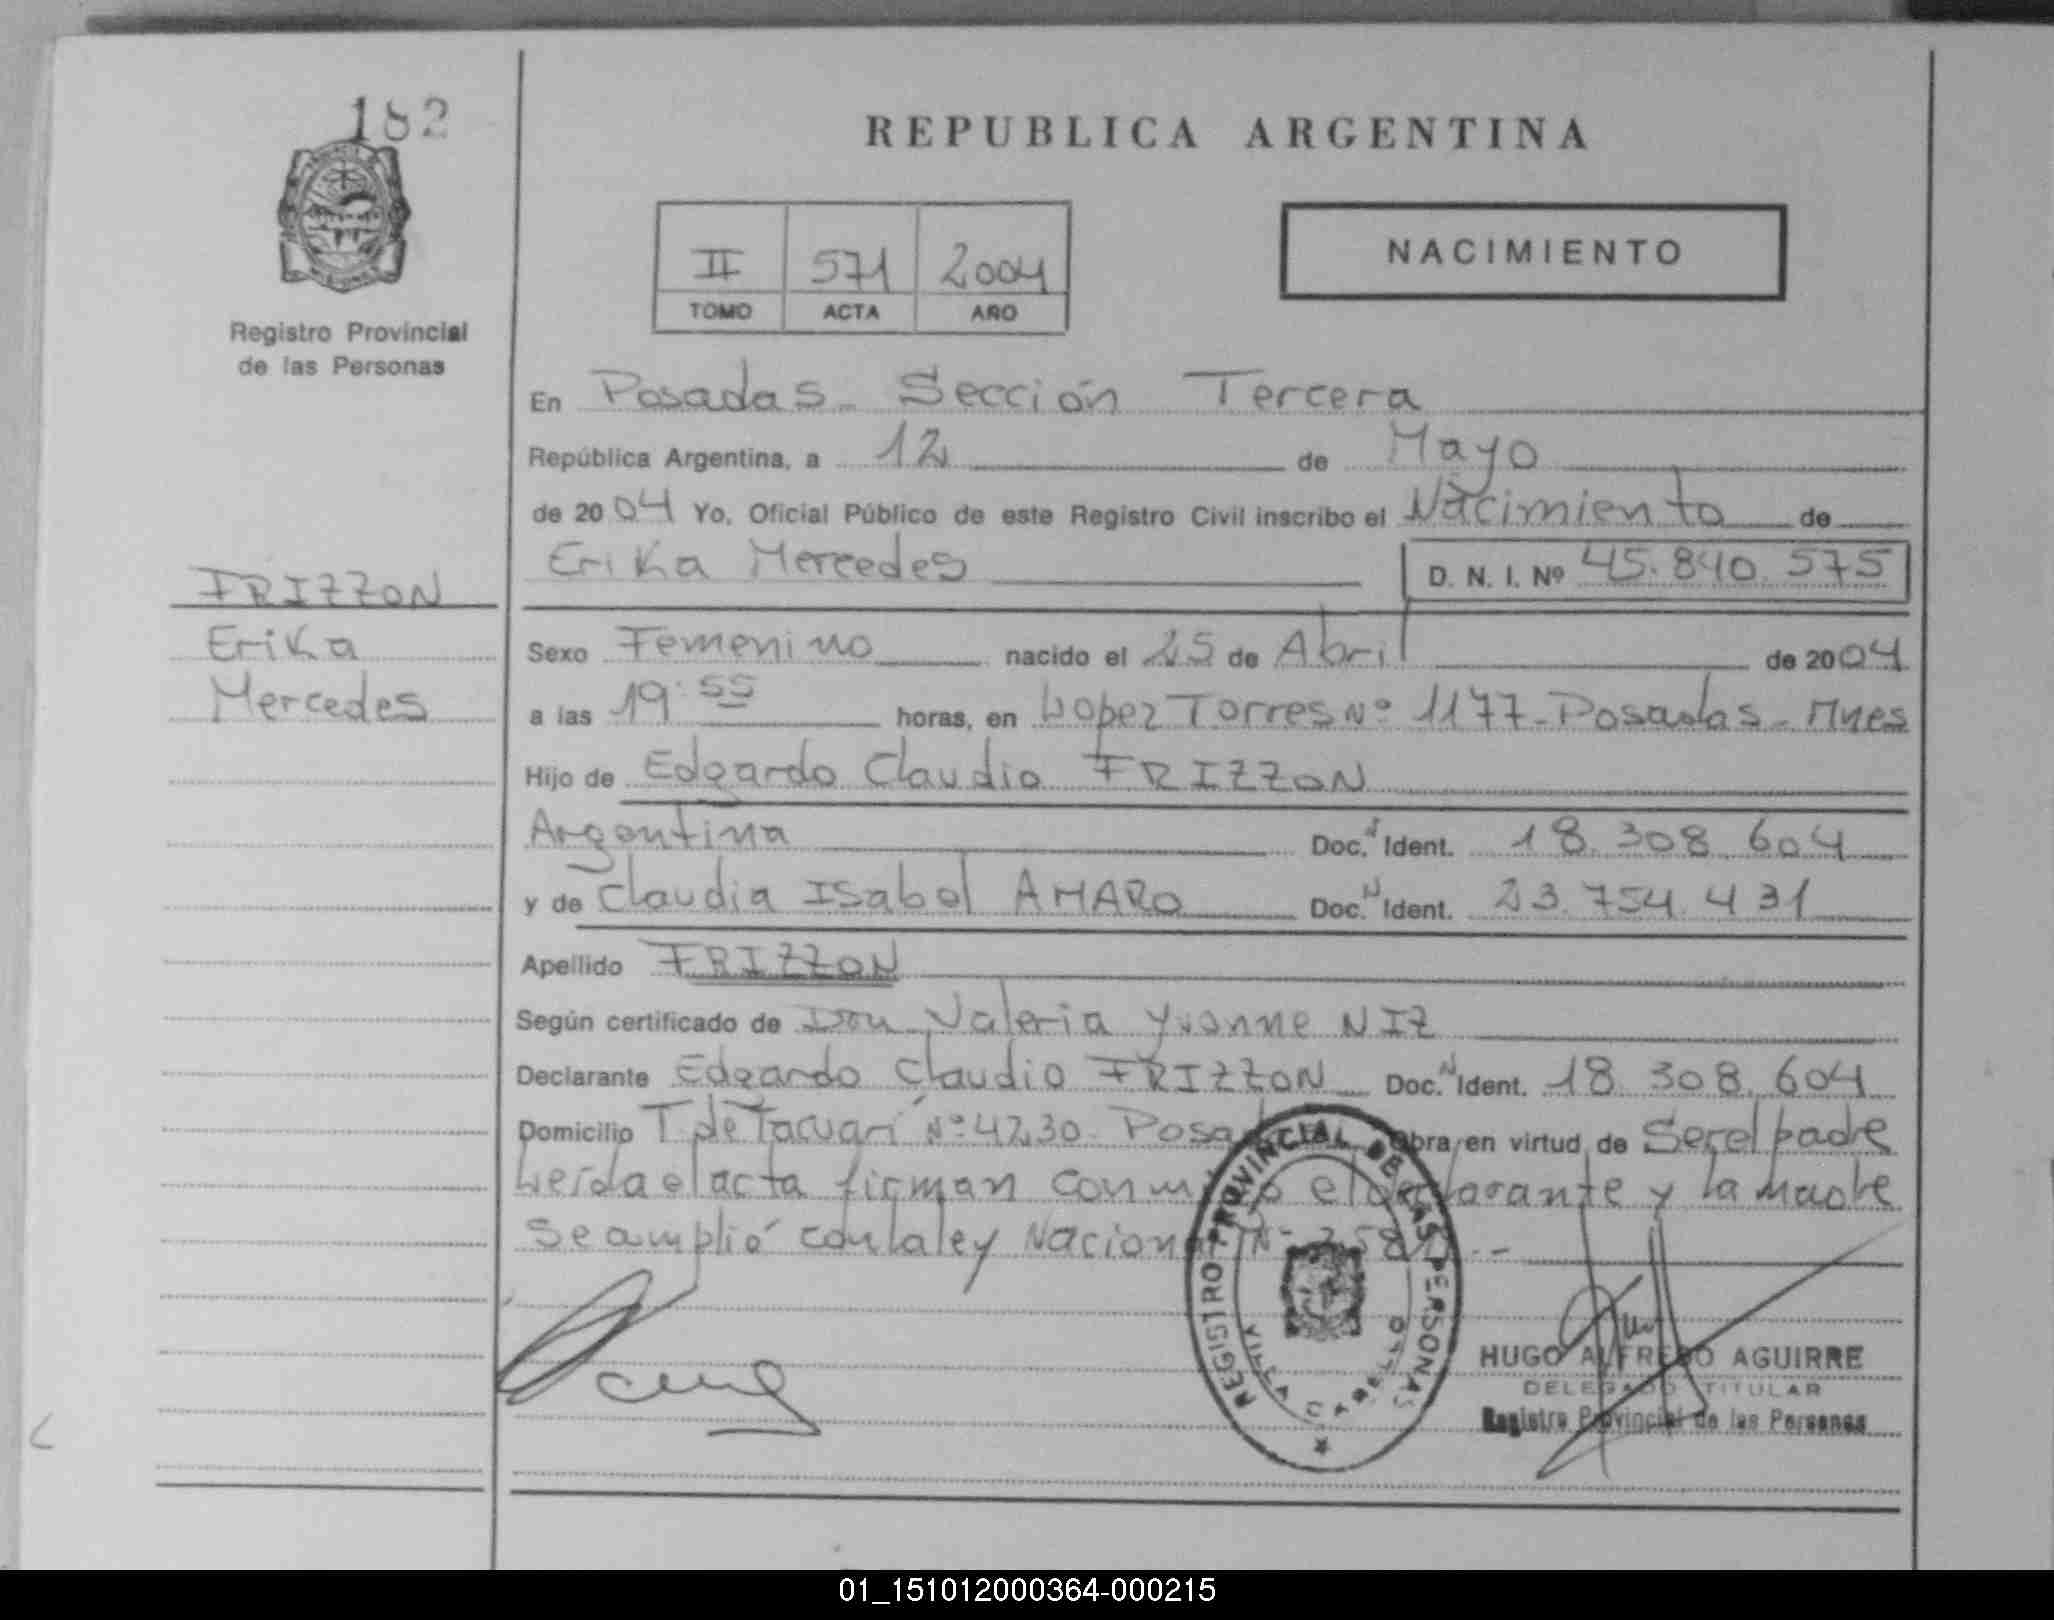 182
REPUBLICA ARGENTINA
II 571 2004
TOMO ACTA AÑO
NACIMIENTO
Registro Provincial
de las Personas
En Posadas - Sección Tercera
República Argentina, a 12 de Mayo
de 2004 Yo, Oficial Público de este Registro Civil inscribo el Nacimiento de
Erika Mercedes D. N. I. Nº 45.840.575
FRIZZON
Erika
Mercedes
Sexo Femenino nacido el 25 de Abril de 2004
a las 19:55 horas, en Lopez Torres Nº 1177 - Posadas - Mnes
Hijo de Edgardo Claudio FRIZZON
Argentina Doc. N Ident. 18.308.604
y de Claudia Isabel AMARO Doc. N Ident. 23.754.431
Apellido FRIZZON
Según certificado de Valeria Yvonne NIZ
Declarante Edgardo Claudio FRIZZON Doc. N Ident. 18.308.604
Domicilio T de Tacuarí Nº 4230 - Obra en virtud de Ser el padre
Leída el acta firman el declarante y la madre
Se amplió con la ley Nacional
REGISTRO PROVINCIAL DE LAS PERSONAS
VILLA CABELLO
HUGO ALFREDO AGUIRRE
DELEGADO TITULAR
Registro Provincial de las Personas
01_151012000364-000215